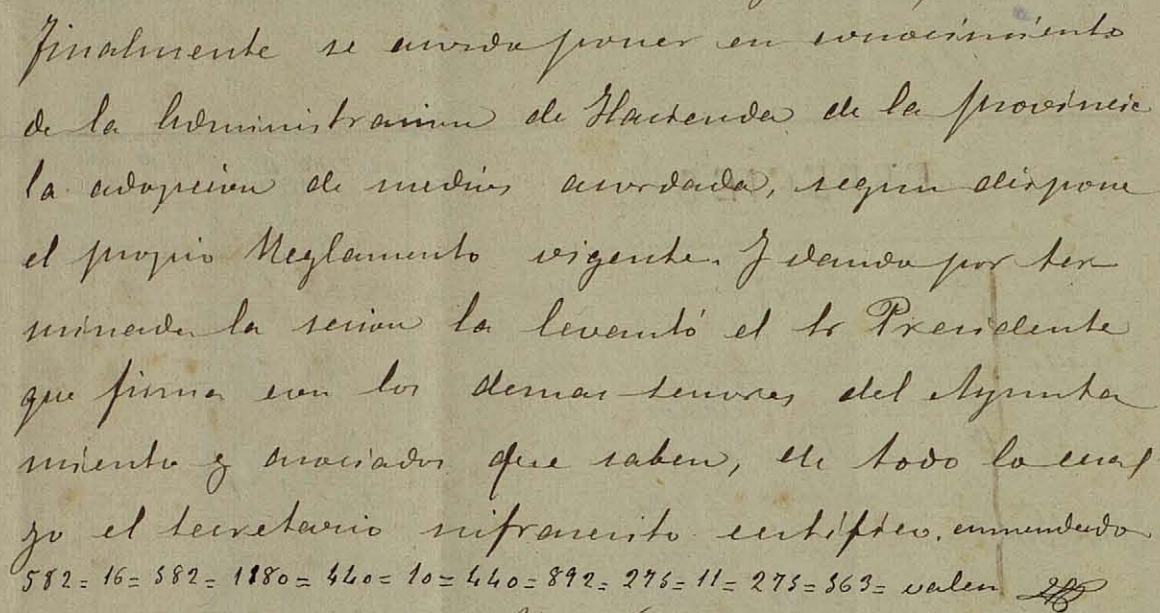 Finalmente se acordo poner en conocimiento
de la Administracion de Hacienda de la provincia
la adopcion de medios acordada, segun dispone
el propio Reglamento vigente. Y dando por ter
minada la sesion la levantó el Sr Presidente
que firma con los demas señores del Ayunta
miento y asociados que saben, de todo lo cual
yo el secretario infrascrito certifico. enmendado
582 = 16 = 582 = 1180 = 440 = 10 = 440 = 892 = 275 = 11 = 275 = 363 = valen